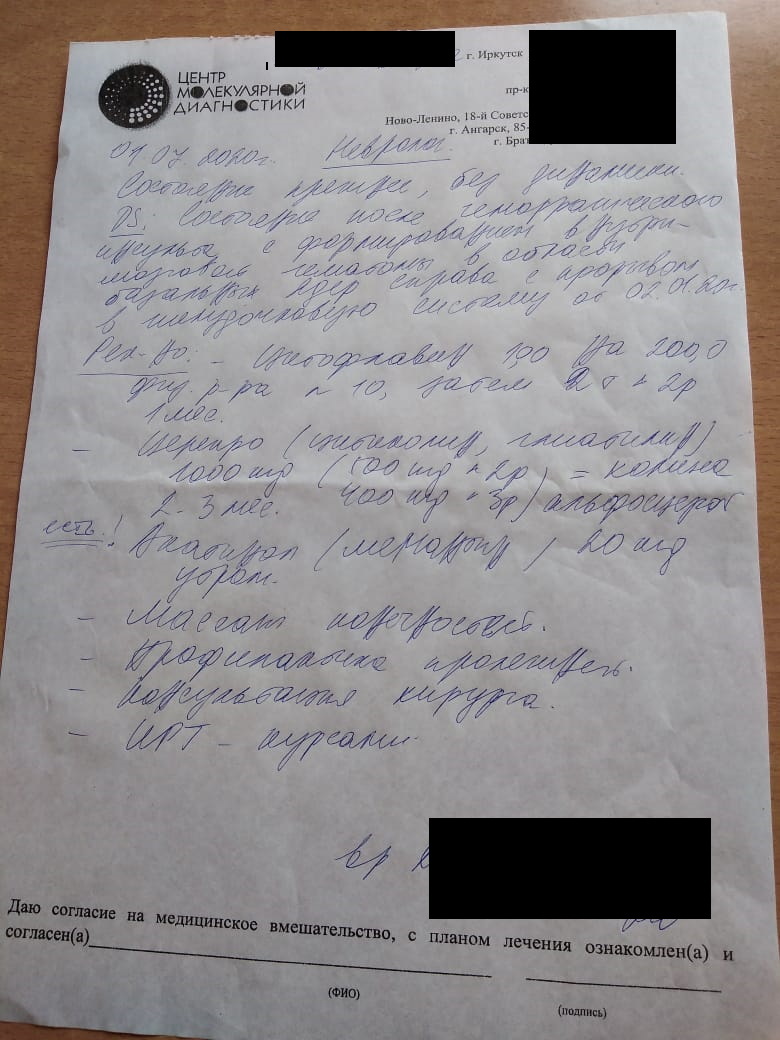 г. Иркутск
ЦЕНТР
МОЛЕКУЛЯРНОЙ
ДИАГНОСТИКИ
пр-к
Ново-Ленино, 18-й Советс
г. Ангарск, 85-
г. Брат
01.07.2020г. Невролог.
Состояние прежнее, без динамики.
DS: Состояние после геморрагического
инсульта с формированием внутри-
мозговой гематомы в области
базальных ядер справа с прорывом
в желудочковую систему от 02.01.20г.
Рек-но: - Цитофлавин 10,0 на 200,0
физ. р-ра n 10, затем 2т × 2р
1 мес.
- Церепро (цитиколин, глиатилин)
1000 mg (500 mg × 2р) = холина
2-3 мес. 400 mg × 3р) альфосцерат
есть! Акатинол (мемантин) 20 mg
утром.
- Массаж конечностей.
- Профилактика пролежней.
- Консультация хирурга.
- ИРТ - курсами
вр
Даю согласие на медицинское вмешательство, с планом лечения ознакомлен(а) и
согласен(а)
(ФИО)
(подпись)